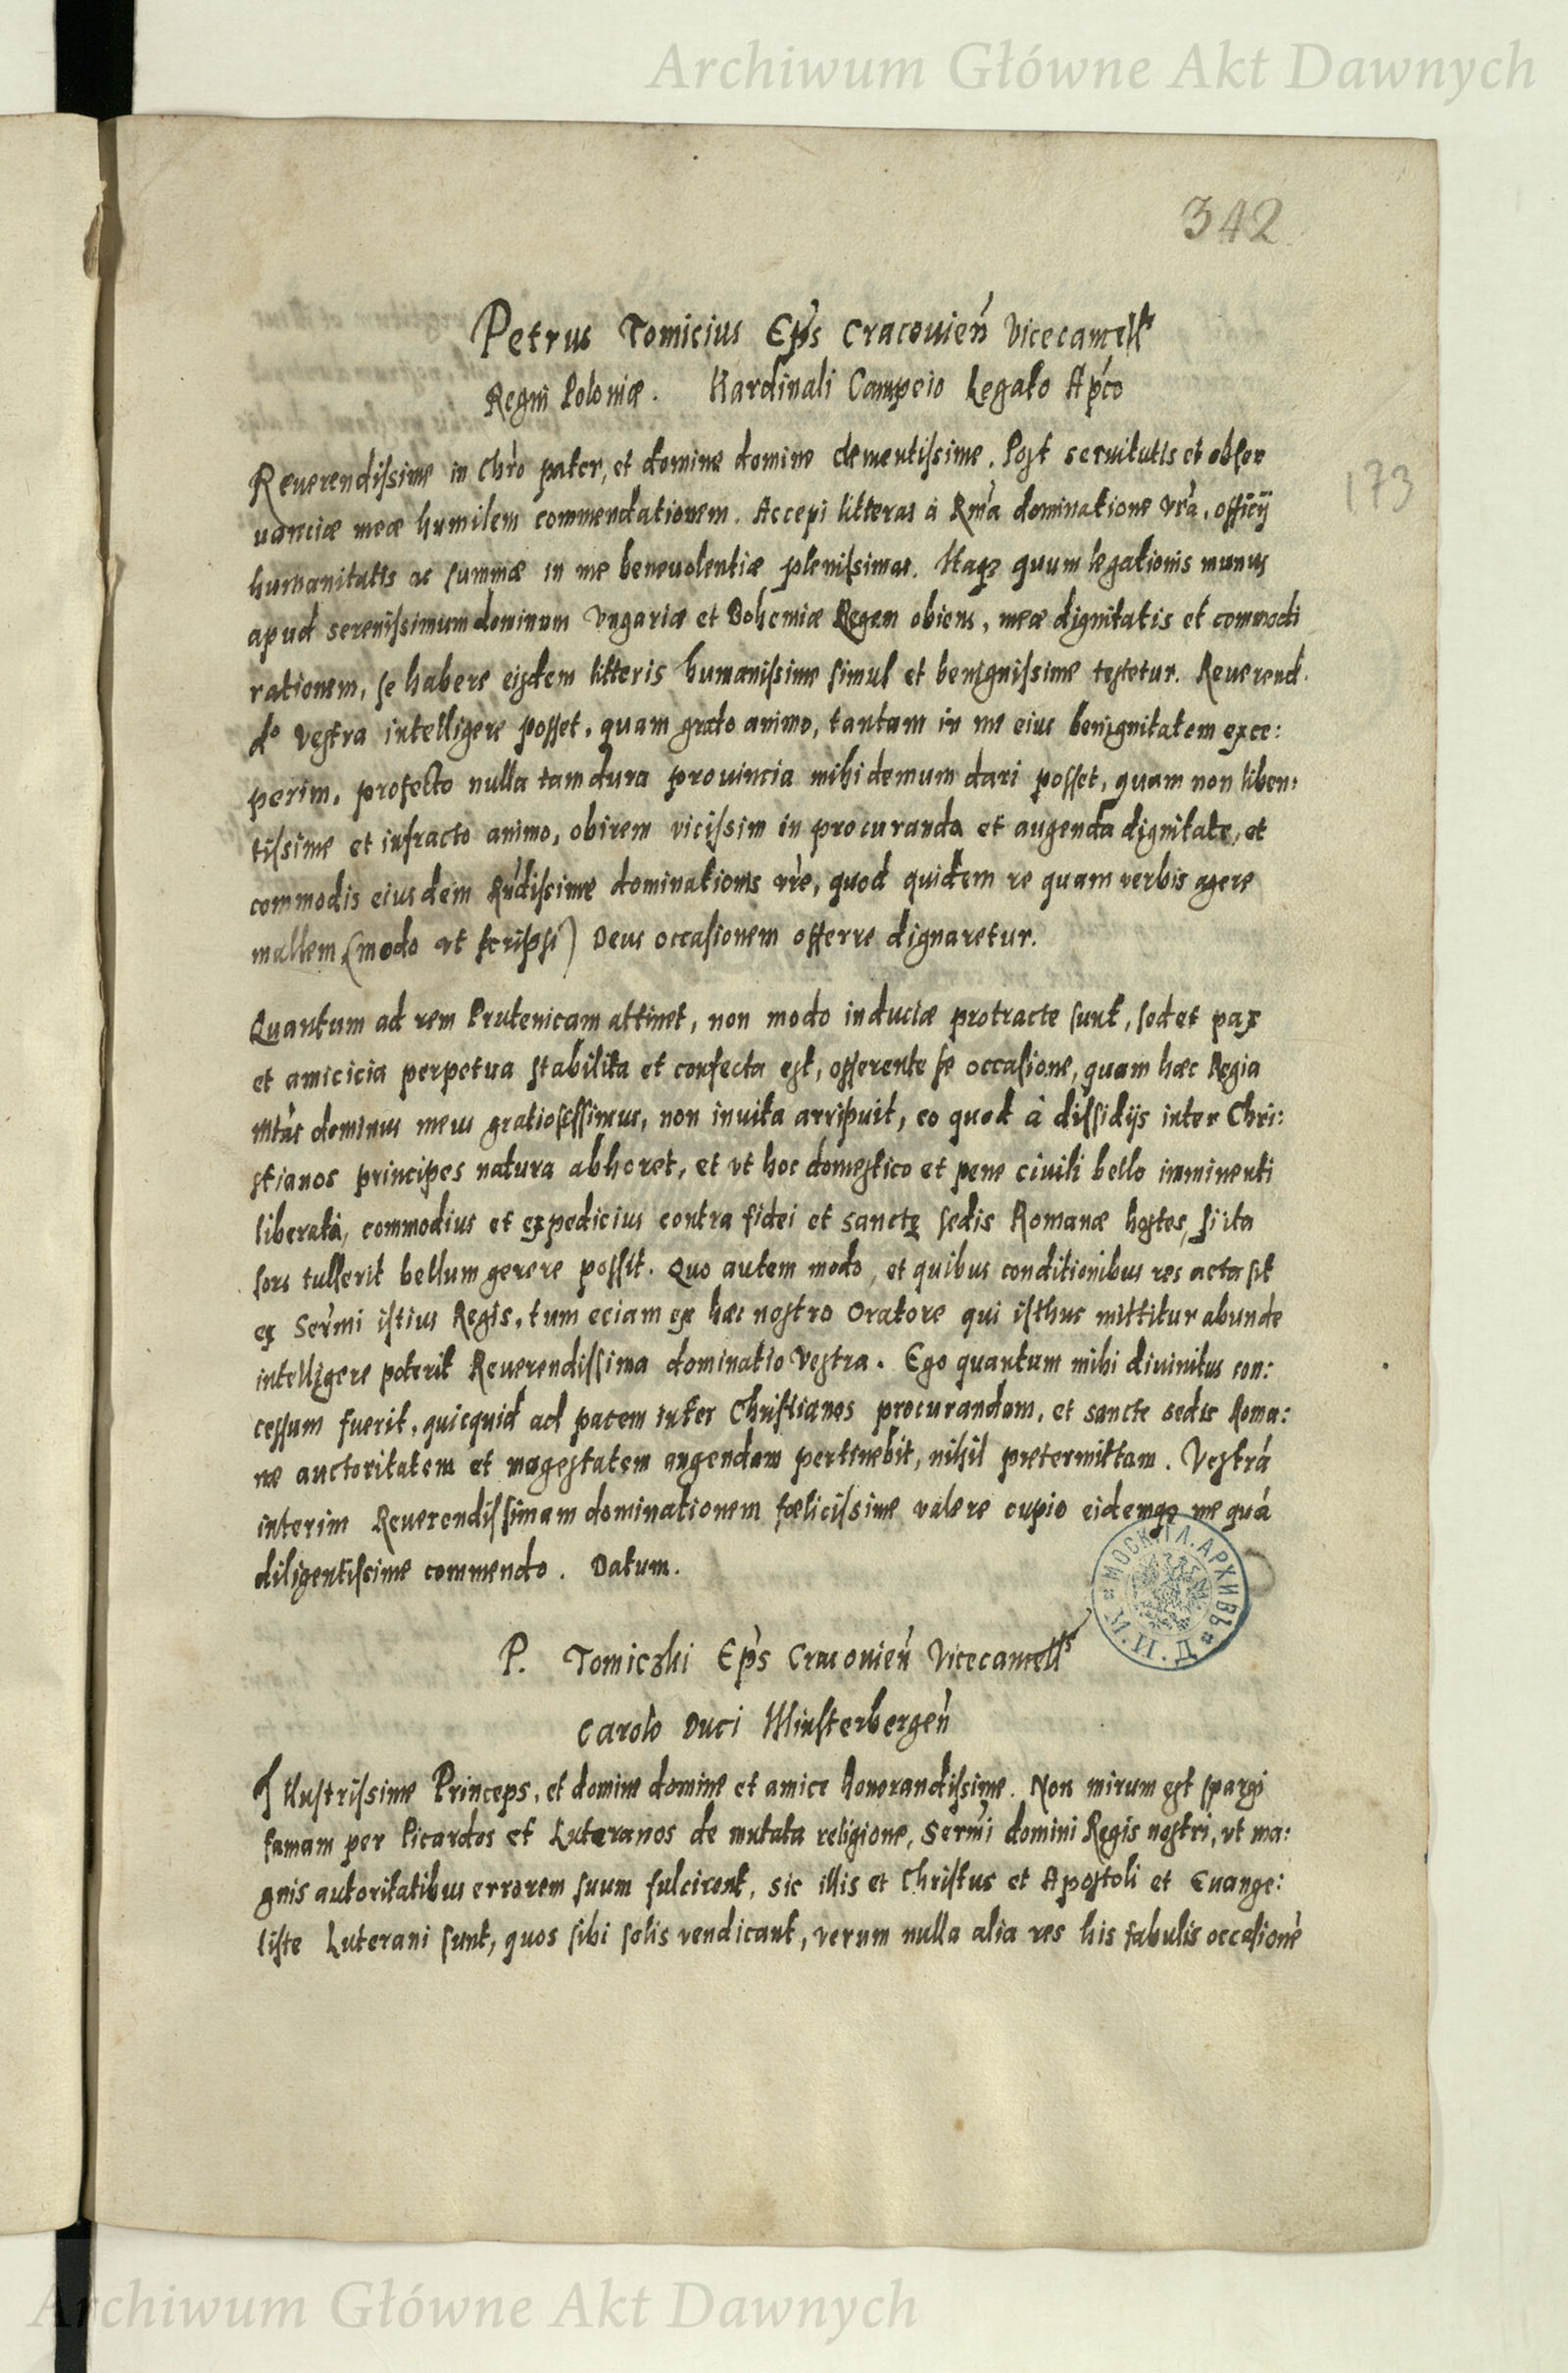 Archiwum Główne Akt Dawnych
342
Petrus Tomicius Ep̃s Cracouień Vicecancell
Regni Poloniæ. Kardinali Campeio Legato Ap̃co
173
Reuerendissime in Chr̃o pater, et domine domine clementissime. Post seruitutis et obser
uanciæ meæ humilem commendationem. Accepi litteras à Rm̃a dominatione vr̃a, officÿ
humanitatis ac summæ in me beneuolentiæ plenissimas. Itaqz quum legationis munus
apud serenissimum dominum Vngariæ et Bohemiæ Regem obiens, meæ dignitatis et commodi
rationem, se habere eisdem litteris humanissime simul et benignissime testetur. Reuerend.
do Vestra intelligere posset, quam grato animo, tantam in me eius benignitatem exce:
perim, profecto nulla tam dura prouincia mihi demum dari posset, quam non liben:
tissime et infracto animo, obirem vicissim in procuranda et augenda dignitate, et
commodis eiusdem Rńdissime dominationis vr̃e, quod quidem re quam verbis agere
mallem (modo ut scripsi) Deus occasionem offerre dignaretur.
Quantum ad rem Prutenicam attinet, non modo induciæ protracte sunt, sed et pax
et amicicia perpetua stabilita et confecta est, offerente se occasione, quam hæc Regia
Mtas dominus meus gratiosissimus, non inuita arripuit, eo quod à dissidijs inter Chri:
stianos principes natura abhoret, et vt hoc domestico et pene ciuili bello imminenti
liberata, commodius et expedicius contra fidei et sanctę sedis Romanæ hostes, si ita
sors tullerit bellum gerere possit. Quo autem modo, et quibus conditionibus res acta sit
ex Serm̃i istius Regis, tum eciam ex hac nostro Oratore qui isthuc mittitur abunde
intelligere poterit Reuerendissima dominatio Vestra. Ego quantum mihi diuinitus con:
cessum fuerit, quicquid ad pacem inter Christianos procurandam, et sancte sedis Roma:
ne auctoritatem et magestatem augendam pertinebit, nihil pretermittam. Vestrã
interim Reuerendissimam dominationem fœlicissime valere cupio eidemqz me quã
diligentissime commendo. Datum.
МОСК. ГЛ. АРХИВЪ
P. Tomiczki Ep̃s Cracouień Vicecancell
Carolo Duci Minsterbergeń
Illustrissime Princeps, et domine domine et amice honorandissime. Non mirum est spargi
famam per Picardos et Luteranos de mutata religione, Serm̃i domini Regis nostri, vt ma:
gnis autoritatibus errorem suum fulcirent, sic illis et Christus et Apostoli et Euange:
liste Luterani sunt, quos sibi solis vendicant, verum nulla alia res his fabulis occasionẽ
Archiwum Główne Akt Dawnych